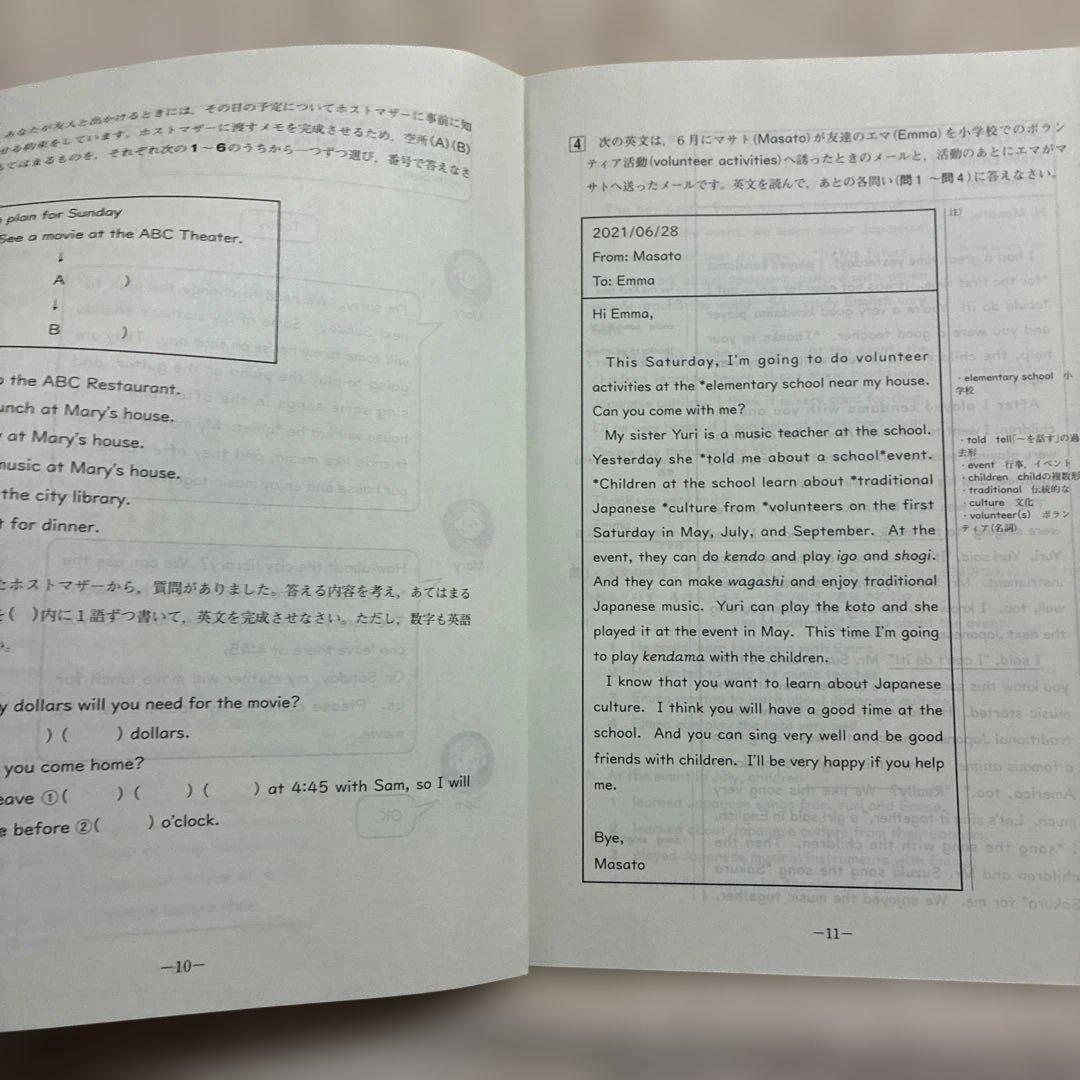 あなたが友人と出かけるときには，その日の予定についてホストマザーに事前に知
せる約束をしています。ホストマザーに渡すメモを完成させるため，空所(A)(B)
てはまるものを，それぞれ次の1～6のうちから一つずつ選び，番号で答えなさ
plan for Sunday
See a movie at the ABC Theater.
↓
A )
↓
B )
the ABC Restaurant.
unch at Mary's house.
at Mary's house.
music at Mary's house.
the city library.
t for dinner.
たホストマザーから，質問がありました。答える内容を考え，あてはまる
を( )内に1語ずつ書いて，英文を完成させなさい。ただし，数字も英語
y dollars will you need for the movie?
) ( ) dollars.
you come home?
eave ①( ) ( ) ( ) at 4:45 with Sam, so I will
e before ②( ) o'clock.
－10－
4 次の英文は，6月にマサト(Masato)が友達のエマ(Emma)を小学校でのボラン
ティア活動(volunteer activities)へ誘ったときのメールと，活動のあとにエマがマ
サトへ送ったメールです。英文を読んで，あとの各問い(問1～問4)に答えなさい。
2021/06/28
From: Masato
To: Emma
Hi Emma,
This Saturday, I'm going to do volunteer
activities at the *elementary school near my house.
Can you come with me?
My sister Yuri is a music teacher at the school.
Yesterday she *told me about a school*event.
*Children at the school learn about *traditional
Japanese *culture from *volunteers on the first
Saturday in May, July, and September. At the
event, they can do kendo and play igo and shogi.
And they can make wagashi and enjoy traditional
Japanese music. Yuri can play the koto and she
played it at the event in May. This time I'm going
to play kendama with the children.
I know that you want to learn about Japanese
culture. I think you will have a good time at the
school. And you can sing very well and be good
friends with children. I'll be very happy if you help
me.
Bye,
Masato
注)
・elementary school 小
学校
・told tell「～を話す」の過
去形
・event 行事，イベント
・children childの複数形
・traditional 伝統的な
・culture 文化
・volunteer(s) ボラン
ティア(名詞)
－11－